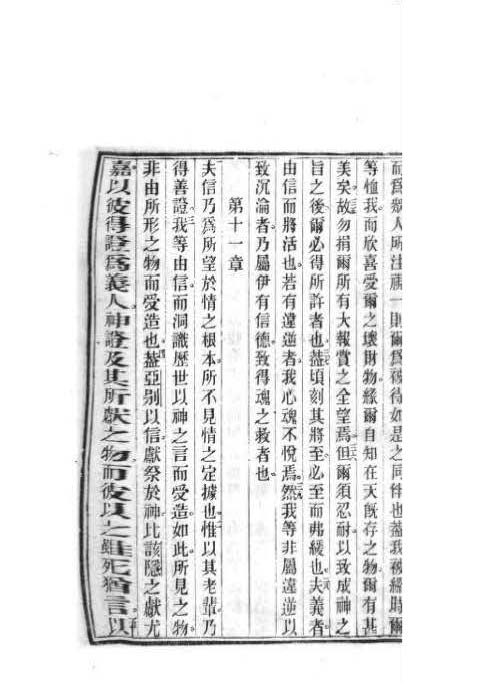 而爲眾人所注禍一則爾爲彼待如是之同伴也葢我被縲時爾
等恤我而欣喜受爾之壞財物緣爾自知在天旣存之物爾有甚
美矣故勿捐爾所有大報賞之全望焉但爾須忍耐以致成神之
旨之後爾必得所許者也葢頃刻其將至必至而弗緩也夫義者
由信而將活也若有違逆者我心魂不悅焉然我等非屬違逆以
致沉淪者乃屬伊有信德致得魂之救者也
第十一章
夫信乃爲所望於情之根本所不見情之定據也惟以其老輩乃
得善證我等由信而洞識歷世以神之言而受造如此所見之物
非由所形之物而受造也葢亞别以信獻祭於神比該隱之獻尤
嘉以彼得證爲義人神證及其所獻之物而彼以之雖死猶言以